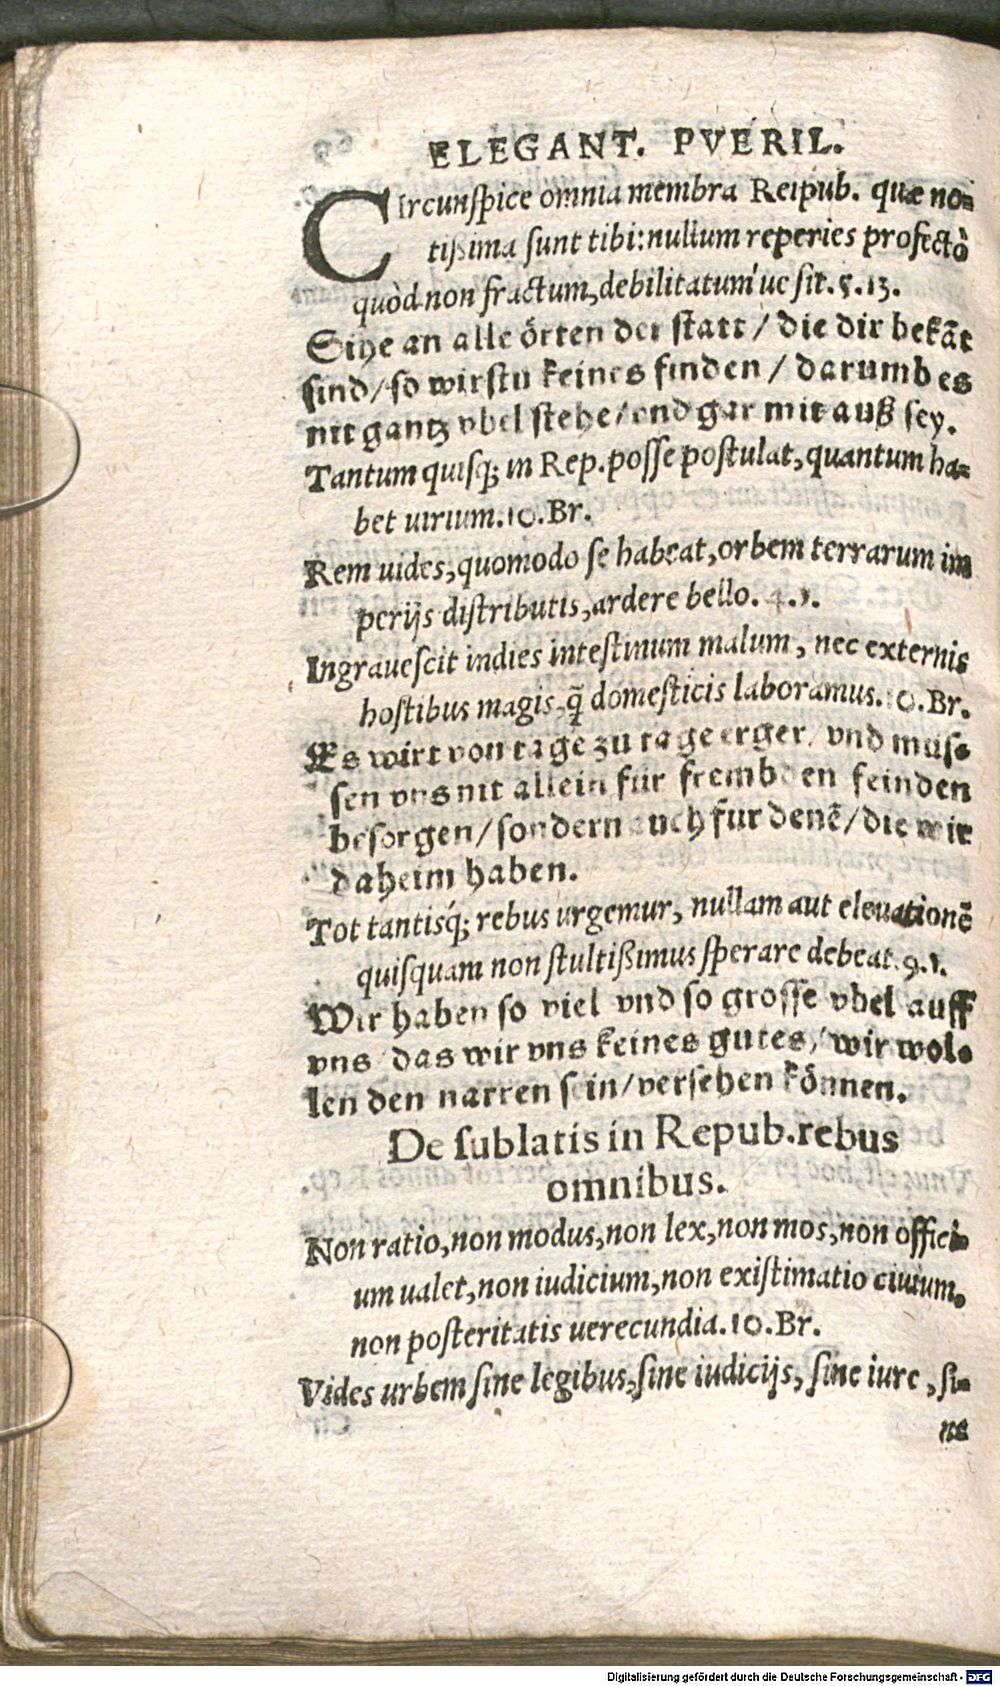 ELEGANT. PVERIL.
CIrcunſpice omnia membra Reipub. quæ no-
tißima ſunt tibi: nullum reperies profectò
quòd non fractum, debilitatum'ue ſit. 5.13.
Sihe an alle örten der ſtatt / die dir bekãt
ſind / ſo wirſtu keines finden / darumb es
nit gantz vbel ſtehe / vnd gar mit auß ſey.
Tantum quiſq; in Rep. poſſe poſtulat, quantum ha-
bet uirium. 10. Br.
Rem uides, quomodo ſe habeat, orbem terrarum im
perijs diſtributis, ardere bello. 4.1.
Ingraueſcit indies inteſtinum malum, nec externis
hoſtibus magis, q̃ domeſticis laboramus. 10. Br.
Es wirt von tage zu tage erger / vnd muſ-
ſen vns nit allein für frembden feinden
beſorgen / ſondern auch fur denẽ / die wir
daheim haben.
Tot tantiſq́; rebus urgemur, nullam aut eleuationẽ
quiſquam non ſtultißimus ſperare debeat. 9.1.
Wir haben ſo viel vnd ſo groſſe vbel auff
vns / das wir vns keines gutes / wir wol-
len den narren ſein / verſehen können.
De ſublatis in Repub. rebus
omnibus.
Non ratio, non modus, non lex, non mos, non offici-
um ualet, non iudicium, non exiſtimatio ciuium,
non poſteritatis uerecundia. 10. Br.
Vides urbem ſine legibus, ſine iudicijs, ſine iure, ſi-
ne
Digitalisierung gefördert durch die Deutsche Forschungsgemeinschaft - DFG